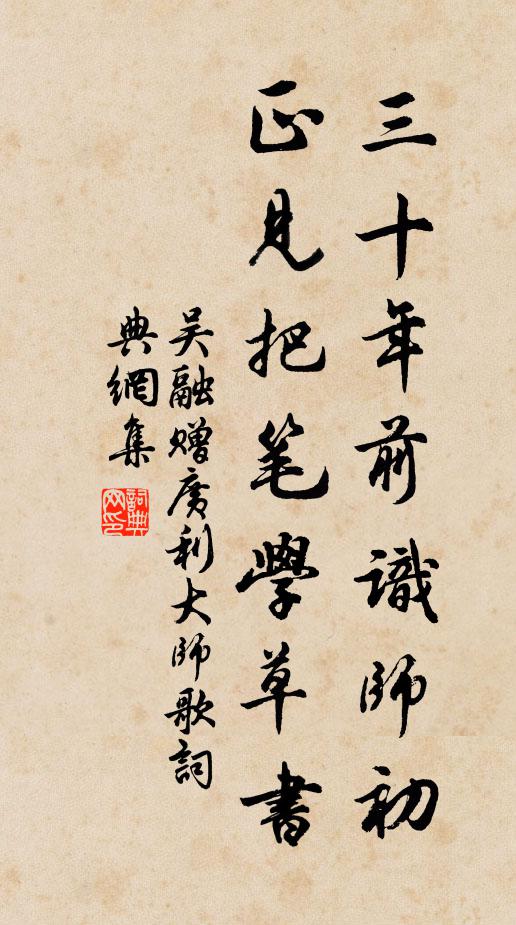 三十年前識師初
正見把笔學草書
吴融贈廣利大師歌詞
典網集
詞典网印